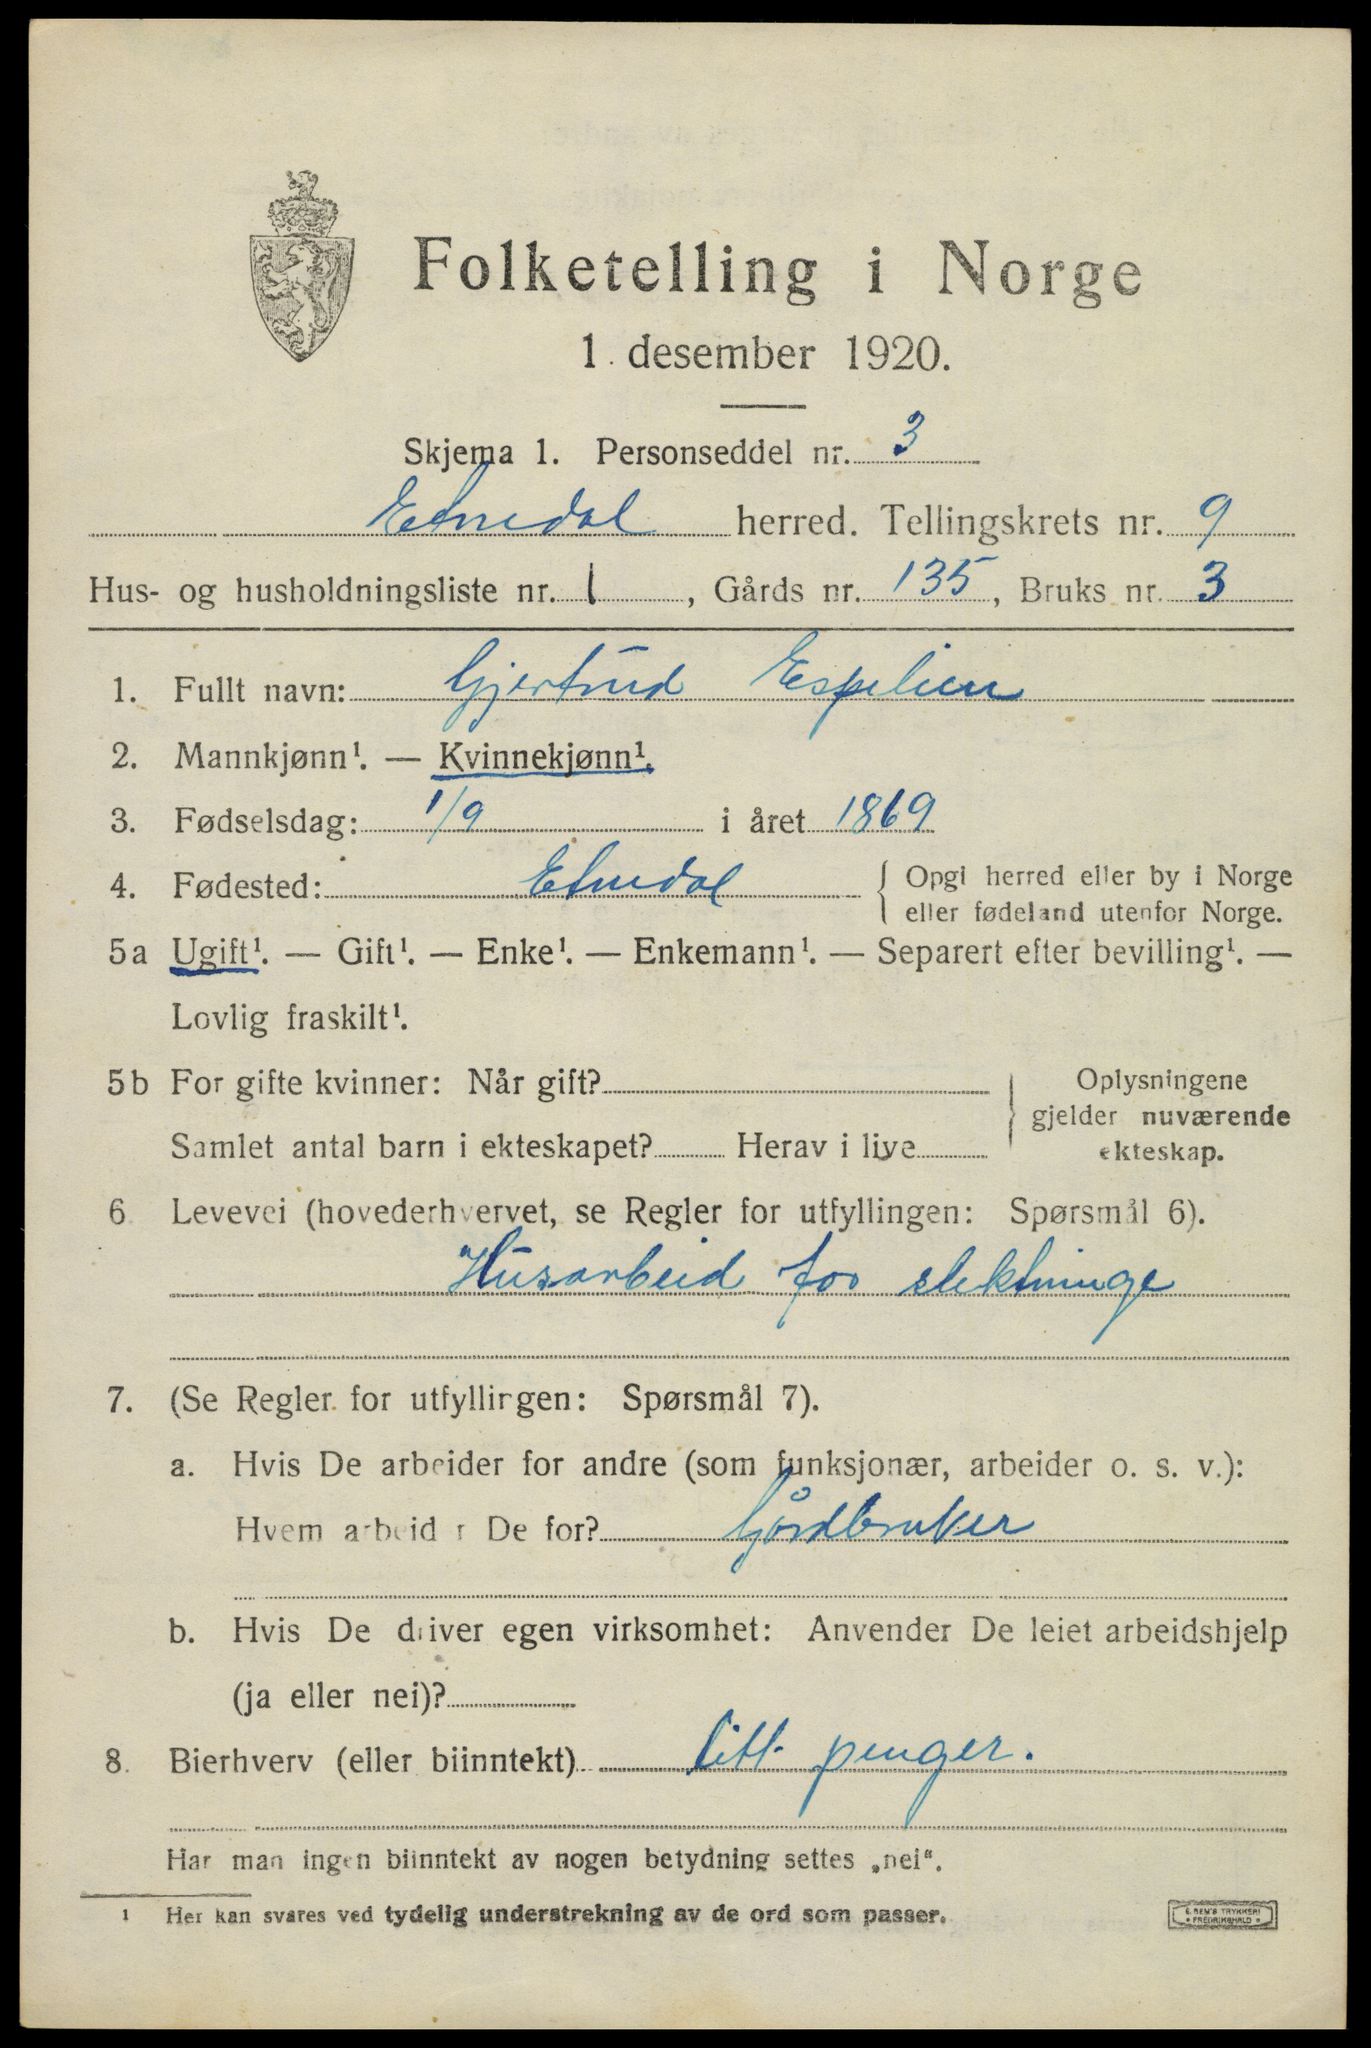 Folketelling i Norge
1. desember 1920.
Skjema 1. Personseddel nr. 3
Etnedal herred. Tellingskrets nr. 9
Hus- og husholdningsliste nr. 1, Gårds nr. 135, Bruks nr. 3
1. Fullt navn: Gjertrud Espelien
2. Mannkjønn¹. — Kvinnekjønn¹.
3. Fødselsdag: 1/9 i året 1869
4. Fødested: Etnedal { Opgi herred eller by i Norge
eller fødeland utenfor Norge.
5a Ugift¹. — Gift¹. — Enke¹. — Enkemann¹. — Separert efter bevilling¹. —
Lovlig fraskilt¹.
5b For gifte kvinner: Når gift?
Samlet antal barn i ekteskapet? Herav i live
Oplysningene
gjelder nuværende
ekteskap.
6 Levevei (hovederhvervet, se Regler for utfyllingen: Spørsmål 6).
Husarbeid for slektninge
7. (Se Regler for utfyllingen: Spørsmål 7).
a. Hvis De arbeider for andre (som funksjonær, arbeider o. s. v.):
Hvem arbeider De for? Gårdbruker
b. Hvis De driver egen virksomhet: Anvender De leiet arbeidshjelp
(ja eller nei)?
8. Bierhverv (eller biinntekt) litt penger.
Har man ingen biinntekt av nogen betydning settes „nei“.
1 Her kan svares ved tydelig understrekning av de ord som passer.
E. SEM'S TRYKKERI
FREDRIKSHALD